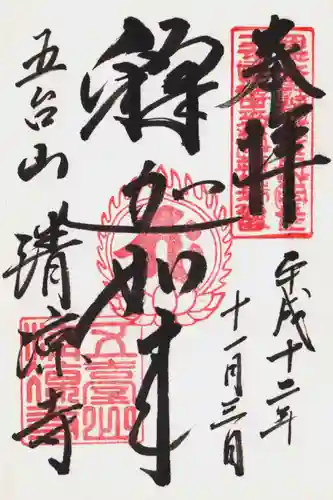 奉拝
平成十二年
十一月三日
釋迦如来
五台山
清凉寺
五臺山
清凉寺